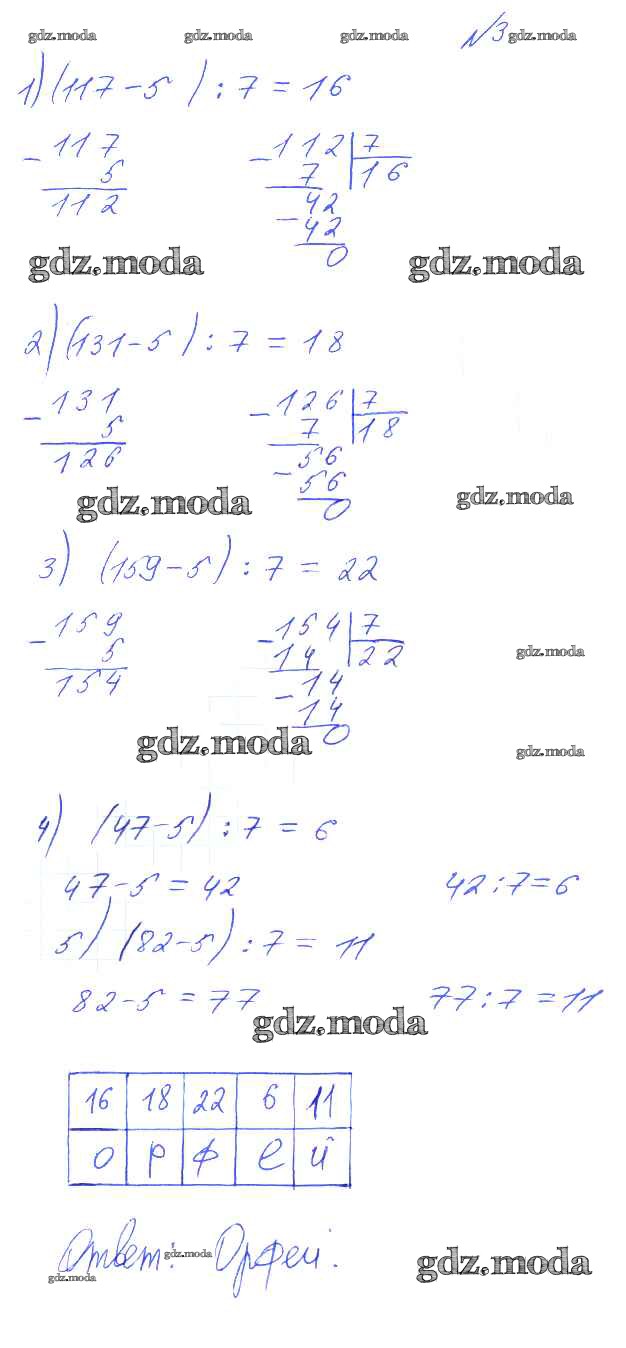 gdz.moda gdz.moda gdz.moda №3 gdz.moda
1) (117-5) : 7 = 16
- 117 - 112 | 7
5 7 16
112 42
- 42
0
gdz.moda gdz.moda
2) (131-5) : 7 = 18
- 131 - 126 | 7
5 7 18
126 - 56
56
0
gdz.moda gdz.moda
3) (159-5) : 7 = 22
- 159 - 154 | 7
5 14 22
154 - 14
14
0
gdz.moda
gdz.moda gdz.moda
4) (47-5) : 7 = 6
47-5 = 42 42:7=6
5) (82-5) : 7 = 11
82-5 = 77 77:7=11
gdz.moda
16 18 22 6 11
О Р Ф Е Й
Ответ: Орфей.
gdz.moda gdz.moda gdz.moda